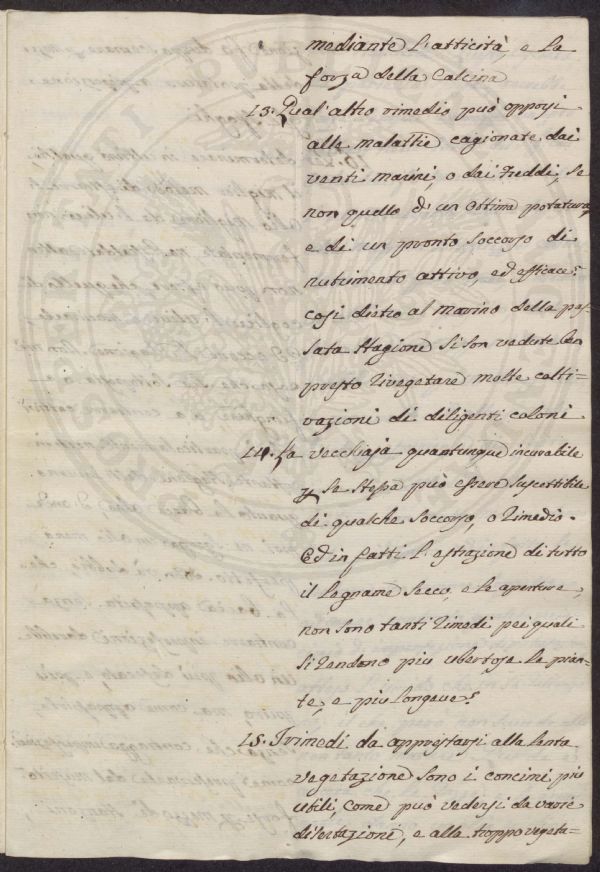 mediante l'atticità, e la
forza della Calcina
13. Qual'altro rimedio può opporsi
alle malattie cagionate dai
venti marini, o dai freddi, se
non quello d'un ottima potatura,
e di un pronto soccorso di
nutrimento attivo, ed efficace?
così dietro al marino della pas=
sata stagione si son vedute ben
presto rivegetare molte colti=
vazioni di diligenti coloni
14. La vecchiaja quantunque incurabile
p se stessa può essere suscettibile
di qualche soccorso, o rimedio.
Ed in fatti l'estrazione di tutto
il legname secco, e le aperture,
non sono tanti rimedi pei quali
si rendono piu ubertose le pian=
te, e piu longeve?
15. I rimedi da apprestarsi alla lenta
vegetazione sono i concimi più
utili, come può vedersi da varie
disertazioni, e alla troppo vegeta=